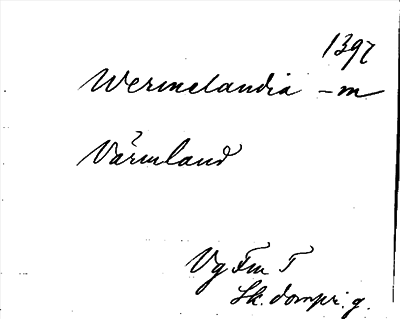 1397
Wermelandia -m
Värmland
Vg Fm T
Sk. dompr. g.